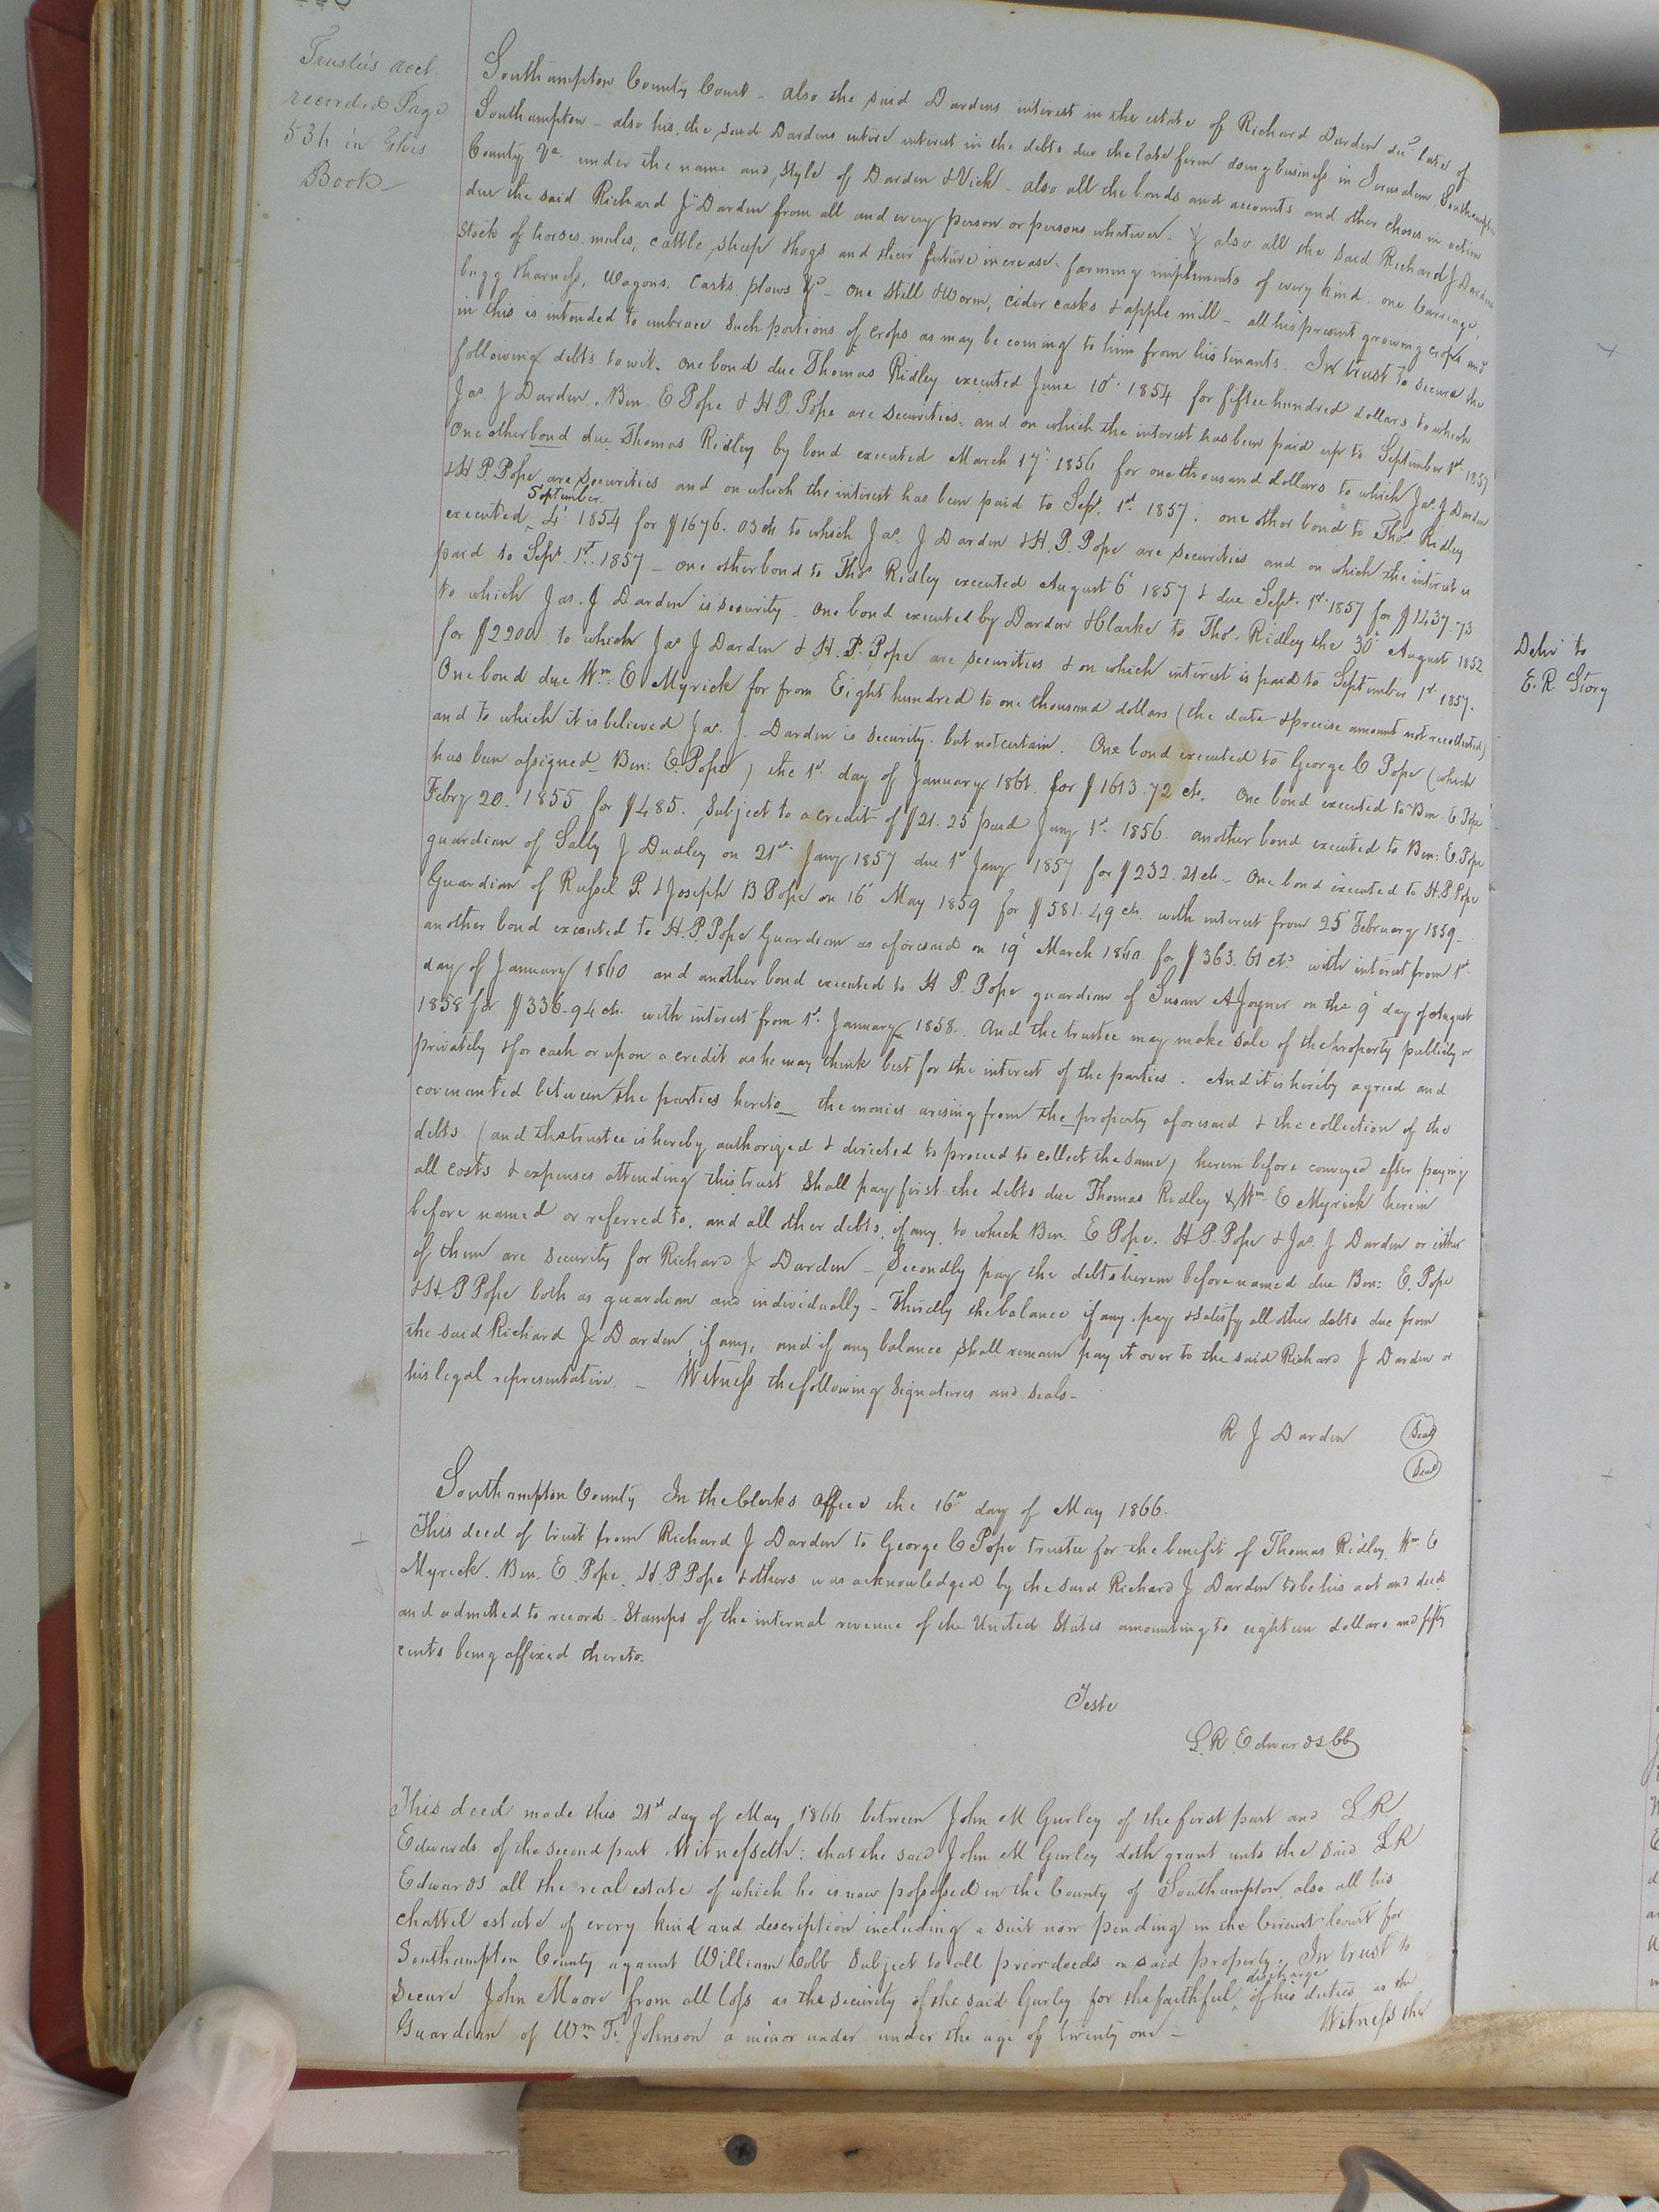 Trustees acct.
recorded Page
534 in this
Book
Southampton County Court - also the said Dardens interest in the estate of Richard Darden decd late of
Southampton - also his, the said Dardens entire interest in the debts due the late firm doing business in Jerusalem Southampton
County Va. under the name and style of Darden & Vick - also all the bonds and accounts and other choses in action
due the said Richard J Darden from all and every person or persons whatever. & also all the said Richard J Darden
Stock of horses, mules, cattle, sheep & hogs and their future increase. farming impliments of every kind. one carriage,
bugg & harness, Wagons. Carts. plows &c - One Still & Worm, cider casks & apple mill - all his present growing crops and
in this is intended to embrace such portions of crops as may be coming to him from his tenants. In trust to secure the
following debts to wit. one bond due Thomas Ridley executed June 10 1854 for fiftee hundred dollars to which
Jas. J Darden, Ben. E Pope & H P. Pope are securities, and on which the interest has been paid up to September 1st 1857
One other bond due Thomas Ridley by bond executed March 17 1856 for one thousand dollars to which Jas. J Darden
& H P. Pope are securities and on which the interest has been paid to Sept. 1st 1857. one other bond to Thos Ridley
September
executed 4 1854 for $1676. 03 cts to which Jas. J Darden & H. P. Pope are securities and on which the interest is
paid to Sept. 1st. 1857 - one other bond to Thos Ridley executed August 6 1857 & due Sept. 1st 1857 for $1437.73
to which Jas. J Darden is security - One bond executed by Darden & Clarke to Thos. Ridley the 30 August 1852
for $2200 to which Jas J Darden & H. P. Pope are securities & on which interest is paid to September 1st 1857.
One bond due Wm. E Myrick for from Eight hundred to one thousand dollars (the date & precise amount not recollected)
and to which it is believed Jas. J. Darden is security. but not certain. One bond executed to George C Pope (which
has been assigned Ben: E. Pope) the 1st day of January 1861 for $1613.72 cts. One bond executed to Ben. E Pope
Febry 20. 1855 for $485. Subject to a credit of $21.25 paid Jany 1st 1856. another bond executed to Ben: E. Pope
guardian of Sally J Dudley on 21st Jany 1857 due 1st Jany 1857 for $232. 21 cts - One bond executed to H. P. Pope
Guardian of Russel P. & Joseph B Pope on 16 May 1859 for $581.49 cts. with interest from 25 February 1859 -
another bond executed to H. P. Pope Guardian as aforesaid on 19 March 1860 for $363. 61 cts with interest from 1st
day of January 1860 and another bond executed to H P. Pope guardian of Susan A Joyner on the 9 day of August
1858 for $336.94 cts. with interest from 1st. January 1858. And the trustee may make sale of the property publicly or
privately & for cash or upon a credit as he may think best for the interest of the parties. And it is hereby agreed and
covenanted between the parties hereto the monies arising from the property aforesaid & the collection of the
debts (and the trustee is hereby authorized & directed to proceed to collect the same) herein before conveyed after paying
all costs & expenses attending this trust shall pay first the debts due Thomas Ridley & Wm E Myrick herein
before named or referred to, and all other debts, if any, to which Ben. E Pope. H P. Pope & Jas. J Darden or either
of them are security for Richard J Darden - Secondly pay the debts herein before named due Ben: E. Pope
& H. P Pope both as guardian and individually - Thirdly the balance if any pay & satisfy all other debts due from
the said Richard J Darden, if any, and if any balance shall remain pay it over to the said Richard J Darden or
his legal representative. - Witness the following Signatures and Seals -
R J Darden Seal
Seal
Southampton County In the Clerks Office the 16th day of May 1866.
This deed of trust from Richard J Darden to George C Pope trustee for the benefit of Thomas Ridley, Wm E
Myrick. Ben. E. Pope. H. P Pope & others was acknowledged by the said Richard J Darden to be his act and deed
and admitted to record - Stamps of the internal revenue of the United States amounting to eighteen dollars and fifty
cents being affixed thereto.
Teste
L. R. Edwards CC
This deed made this 21st day of May 1866 between John M Gurley of the first part and L R
Edwards of the second part Witnesseth: that the said John M Gurley doth grant unto the said L R
Edwards all the real estate of which he is now possessed in the County of Southampton, also all his
chattel estate of every kind and description including a suit now pending in the Circuit Court for
Southampton County against William Cobb Subject to all prior deeds on said property. In trust to
discharge
Secure John Moore from all loss as the security of the said Gurley for the faithful of his duties as the
Guardian of Wm. T. Johnson a minor under under the age of twenty one - Witness the
Delv to
E. R. Story